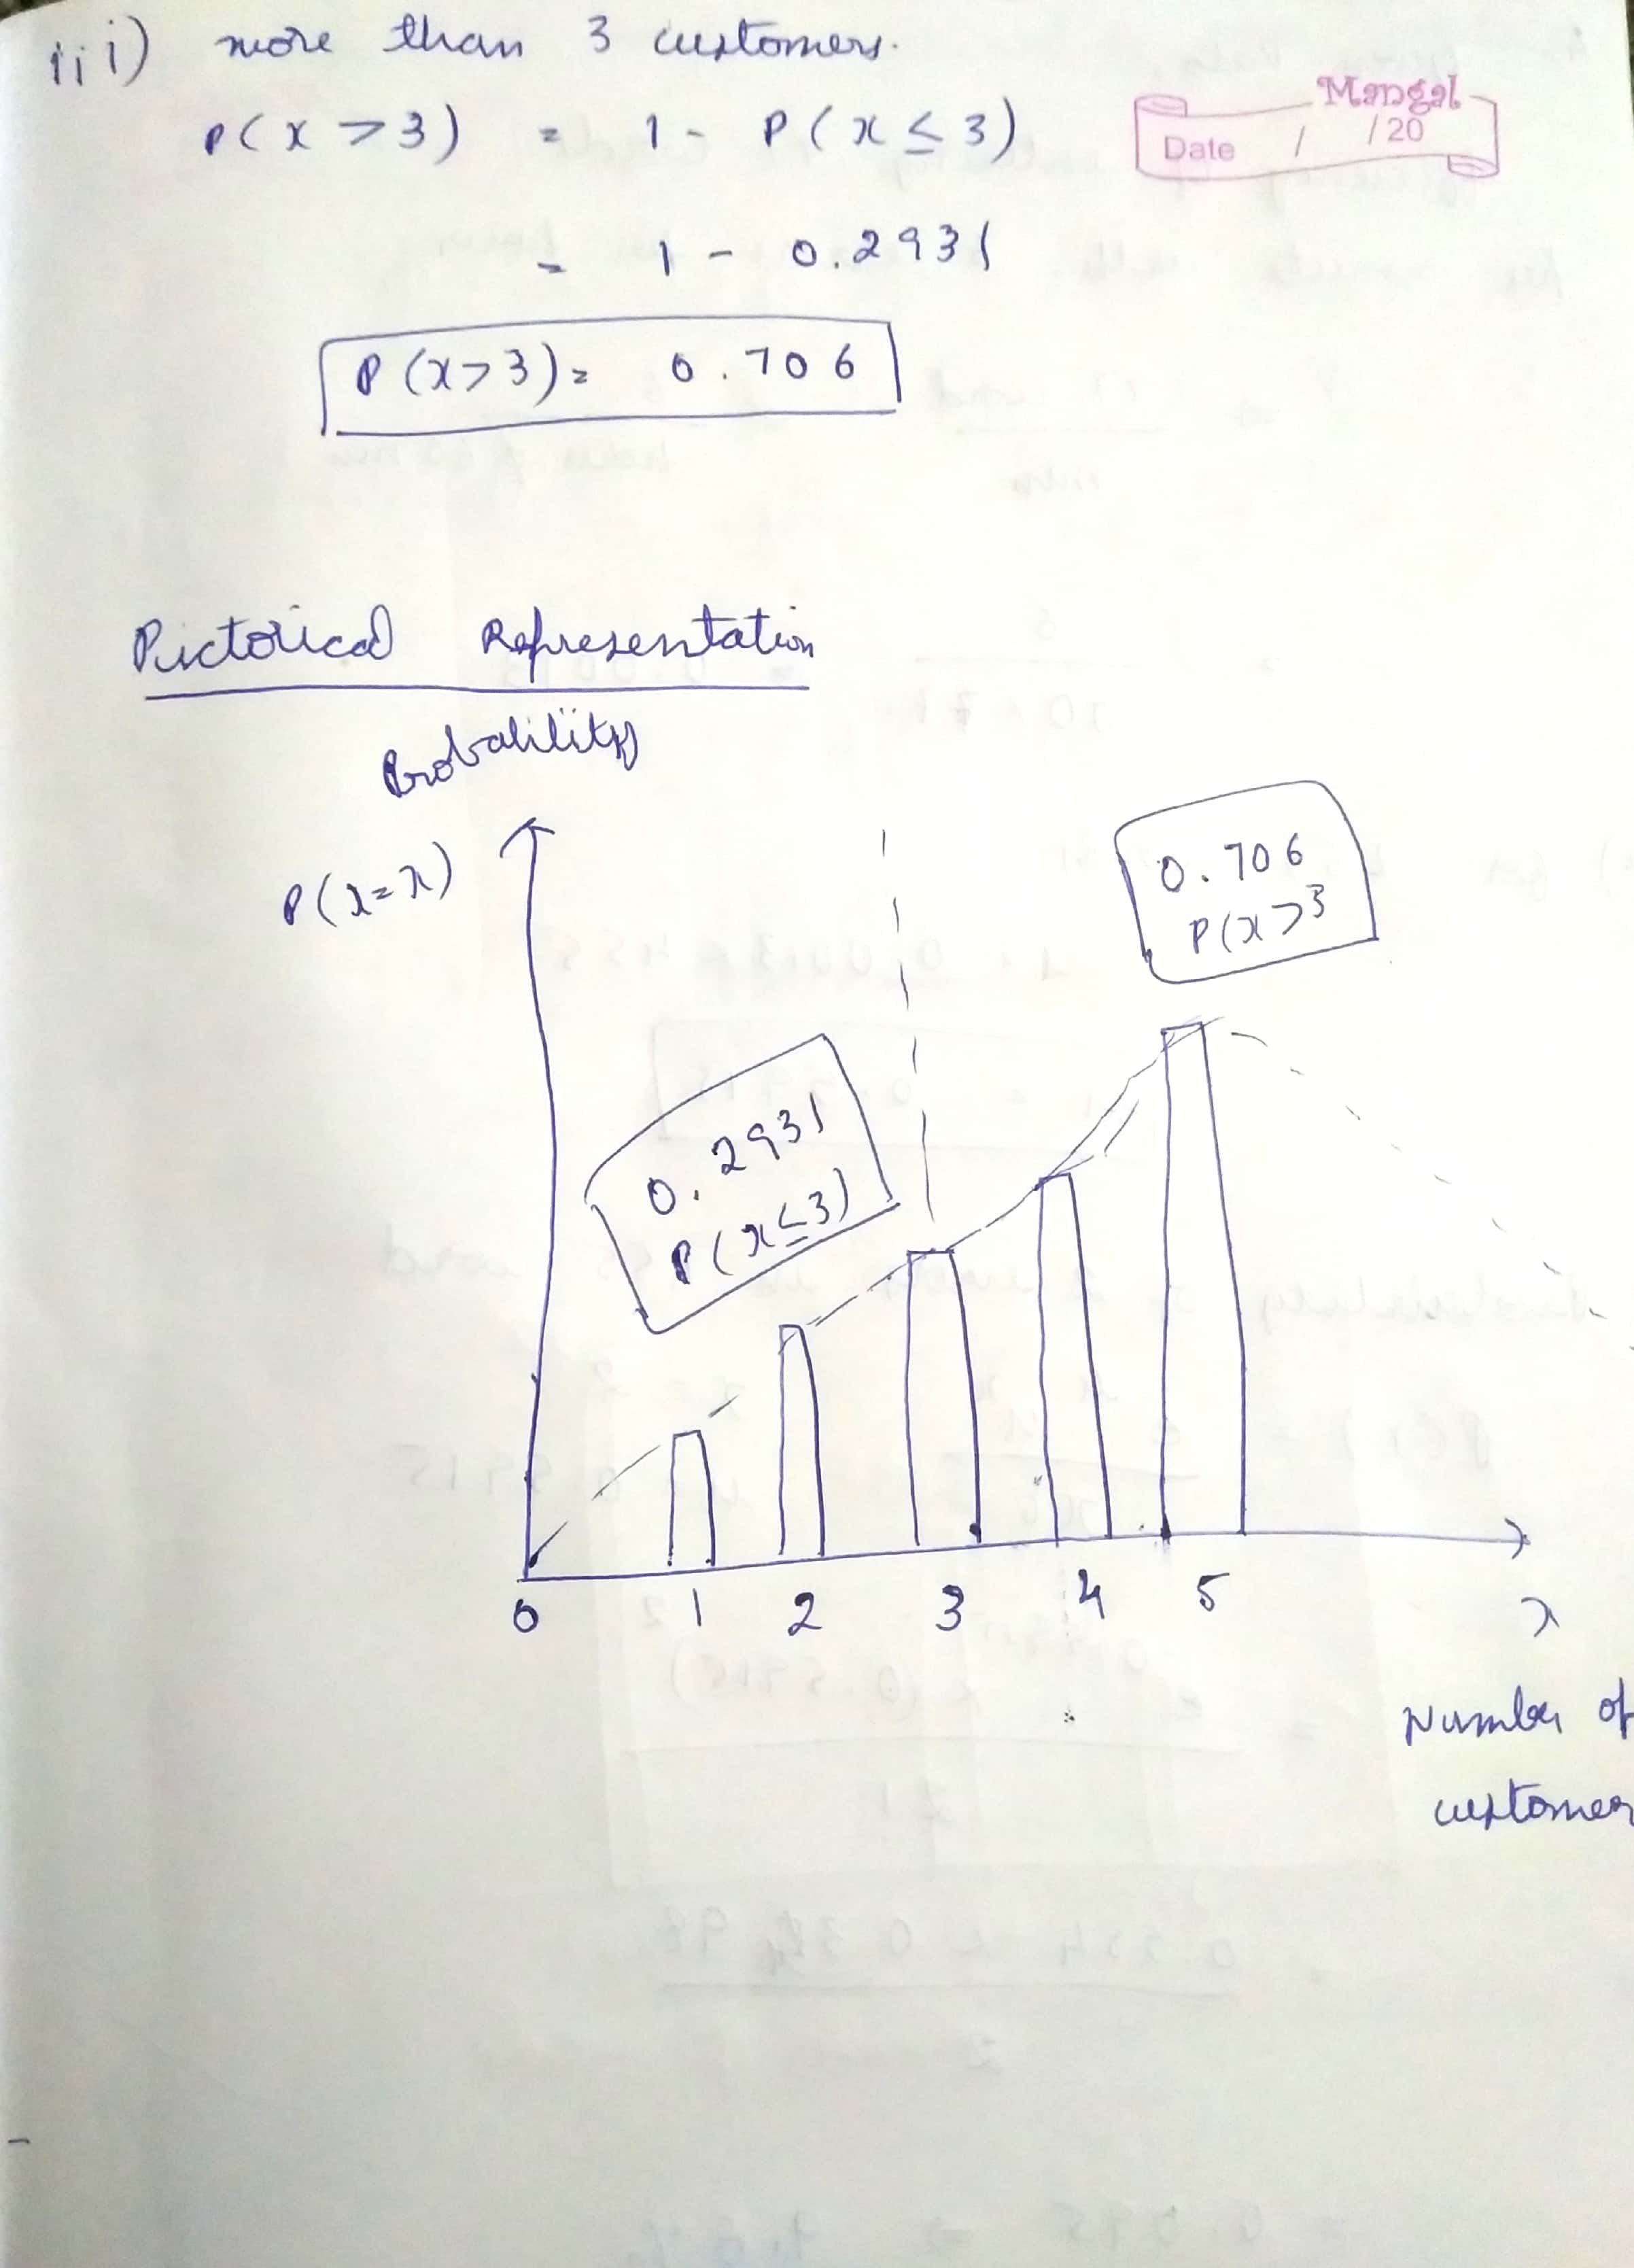 iii) more than 3 customers.
Mangal
Date / /20
P(x > 3) = 1 - P(x ≤ 3)
= 1 - 0.2931
P(x>3) = 0.706
Pictorical Representation
Probability
P(x=x)
0.706
P(x>3
0.2931
P(x≤3)
0 1 2 3 4 5 x
Number of
customer